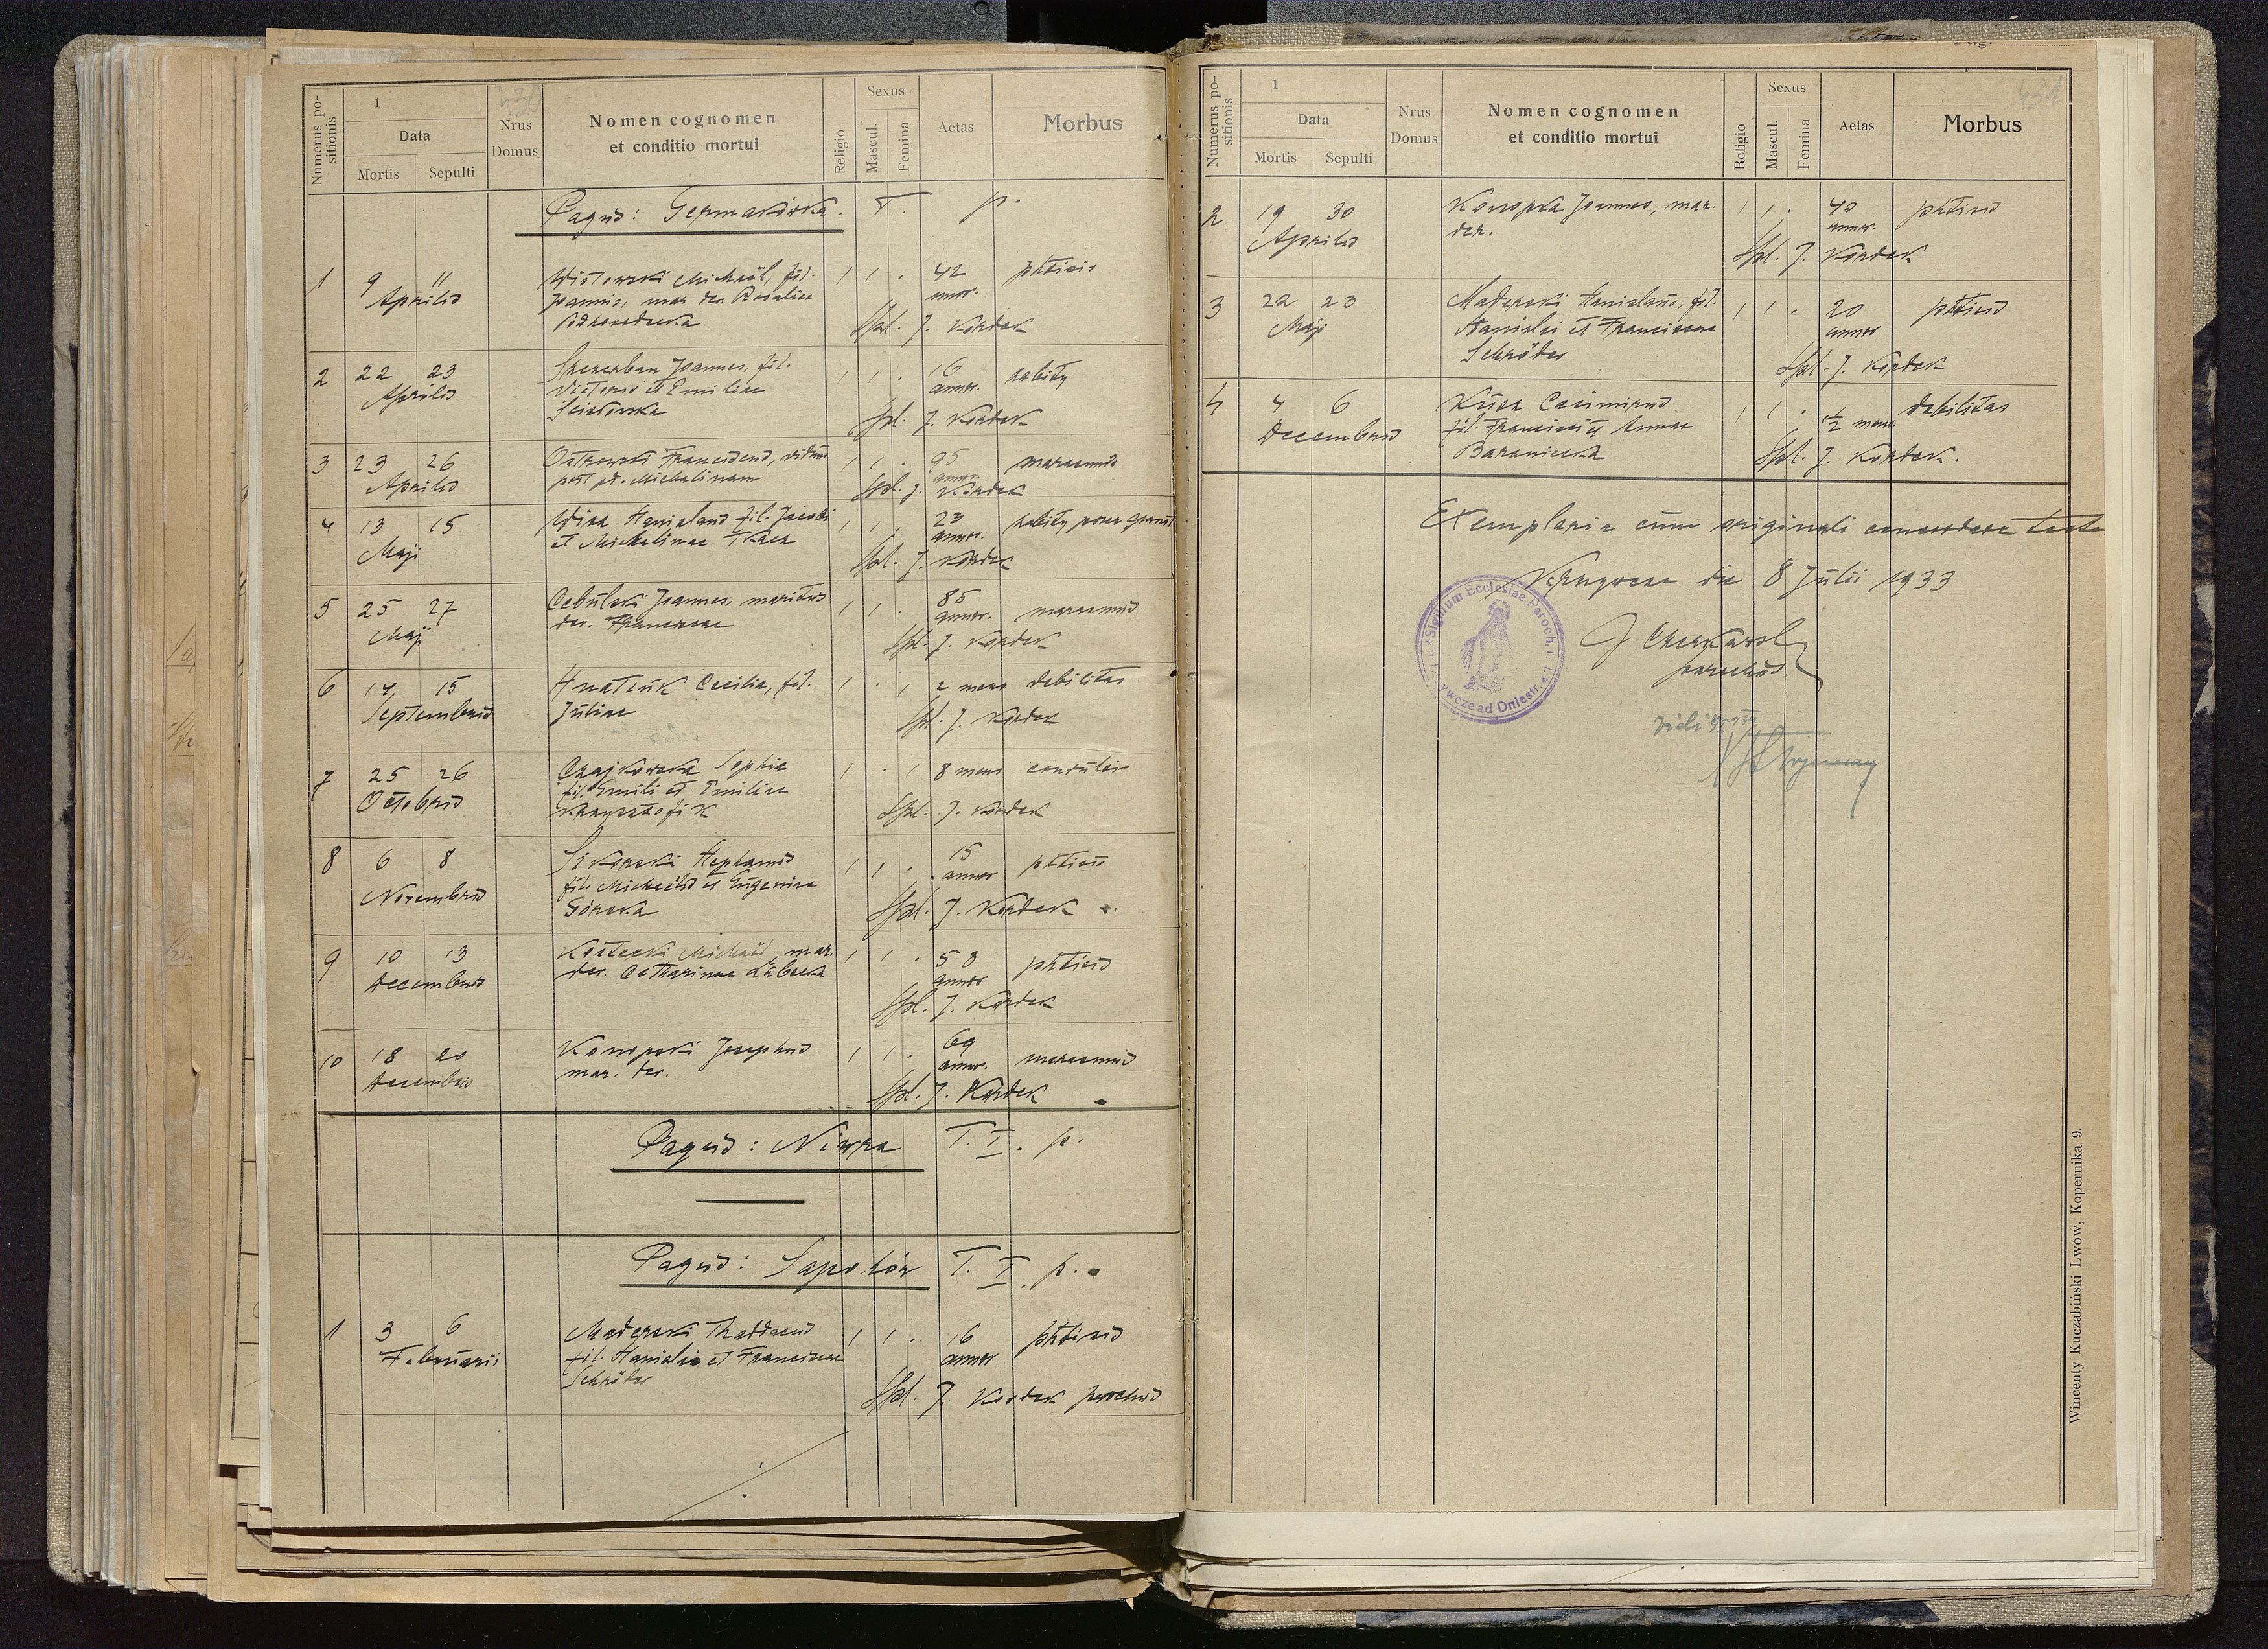 430
Numerus positionis
1
Data
Mortis Sepulti
Nrus Domus
Nomen cognomen
et conditio mortui
Religio
Sexus
Mascul. Femina
Aetas
Morbus
Pagus: Germakówka. T. p.
1 9 11 Michaël, fil. 1 1 . 42 phtisis
Aprilis Joannis, mar. der. Rosaliae annor.
Spl. J. Kordek
2 22 23 Joannes, fil. 1 1 . 16 zabity
Aprilis Victoris et Emiliae annor.
Spl. J. Kordek
3 23 26 Ostrowski Franciscus, viduus 1 1 . 95 marasmus
Aprilis post pd. Michalinam annor.
Spl. J. Kordek
4 13 15 Stanislaus fil. Jacobi 1 1 . 23 zabity przez granat
Maji et Michalinae Tkacz annor.
Spl. J. Kordek
5 25 27 Cebulski Joannes, maritus 1 1 . 85 marasmus
Maji der. Franciscae annor.
Spl. J. Kordek
6 14 15 Hnatiuk Cecilia, fil. 1 . 1 2 mens debilitas
Septembris Juliae
Spl. J. Kordek
7 25 26 Czajkowska Sophia 1 . 1 8 mens
Octobris fil. Emili et Emiliae
Spl. J. Kordek
8 6 8 Sikorski Stephanus 1 1 . 15 phtisis
Novembris fil. Michaëlis et Eugeniae annor
Górska
Spl. J. Kordek
9 10 13 Kostecki Michaël, mar. 1 1 . 58 phtisis
Decembris der. Catharinae annor
Spl. J. Kordek
10 18 20 Konopski Josephus 1 1 . 69 marasmus
Decembris mar. der. annor.
Spl. J. Kordek
Pagus: Niwra T. I. p.
Pagus: Sapohów T. I. p.
1 3 6 Maderski Thaddaeus 1 1 . 16 phtisis
Februarii fil. Stanislai et Franciscae annor
Schröder
Spl. J. Kordek parochus
431
Pag.
Numerus positionis
1
Data
Mortis Sepulti
Nrus Domus
Nomen cognomen
et conditio mortui
Religio
Sexus
Mascul. Femina
Aetas
Morbus
2 19 30 Konopka Joannes, mar. 1 1 . 40 phtisis
Aprilis der. annor.
Spl. J. Kordek
3 22 23 Maderski Stanislaus, fil. 1 1 . 20 phtisis
Maji Stanislai et Franciscae annor
Schröder
Spl. J. Kordek
4 4 6 Casimirus 1 1 . 1/2 mens debilitas
Decembris fil. Francisci et Annae
Baraniecka
Spl. J. Kordek.
Exemplaria cum originali concordare testor
die 8 Julii 1933
parochus
Sigillum Ecclesiae Paroch. r. l.
ywcze ad Dniestr.
Vidi
Wincenty Kuczabiński Lwów, Kopernika 9.